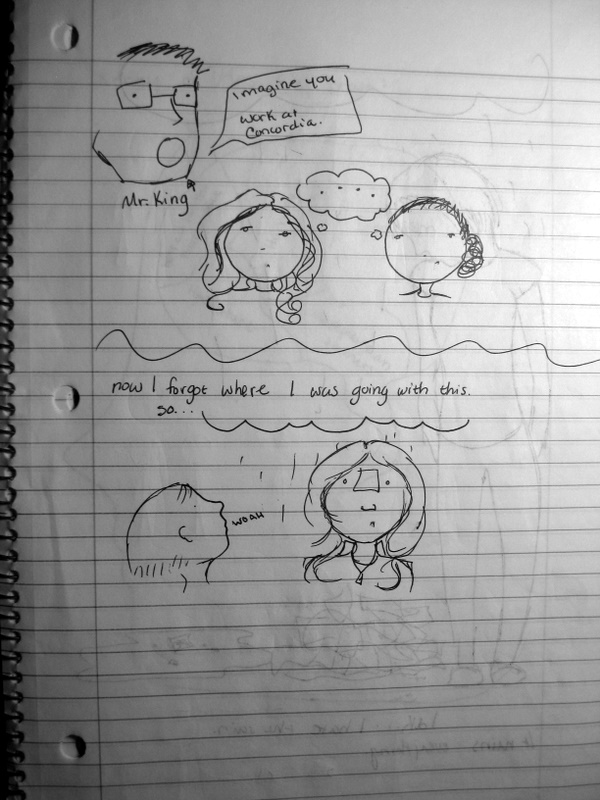 Imagine you
work at
Concordia.
Mr. King
....
now I forgot where I was going with this.
so...
woah